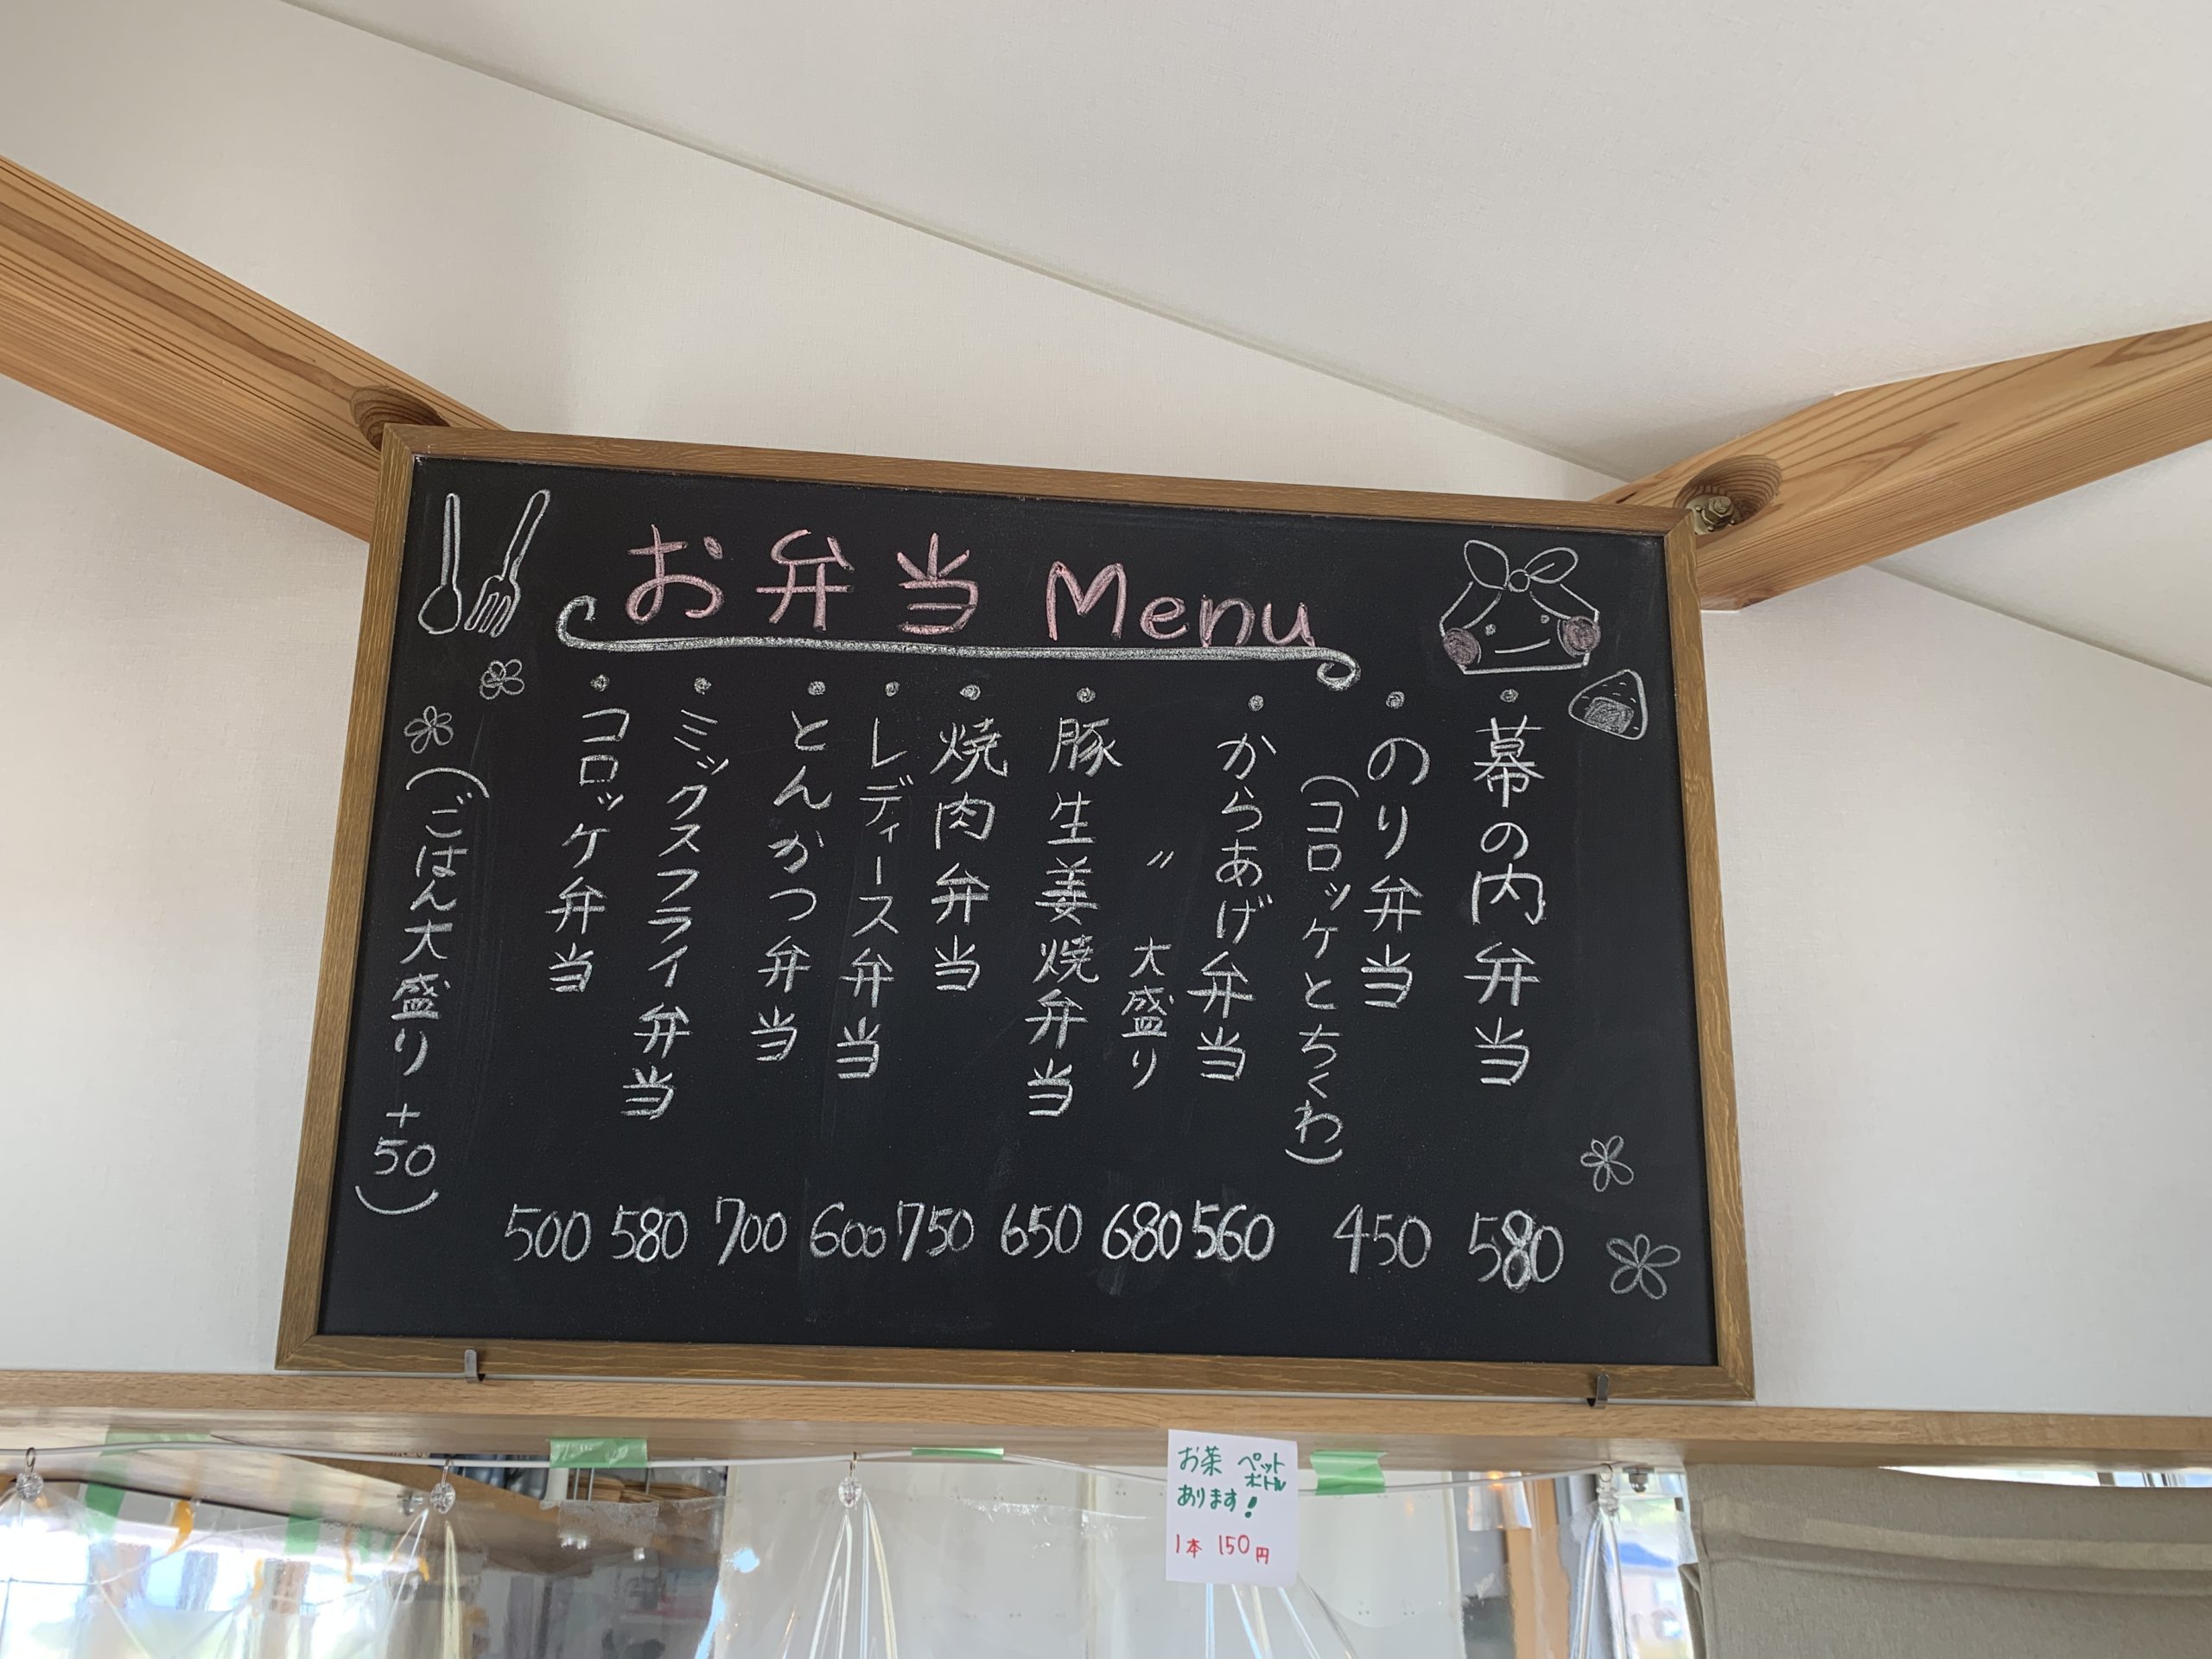 お弁当 Menu
・幕の内弁当 580
・のり弁当 450
(コロッケとちくわ)
・からあげ弁当 560
〃 大盛り 680
・豚生姜焼弁当 650
・焼肉弁当 750
・レディース弁当 600
・とんかつ弁当 700
・ミックスフライ弁当 580
・コロッケ弁当 500
(ごはん大盛り +50)
お茶 ペットボトル
あります!
1本 150円